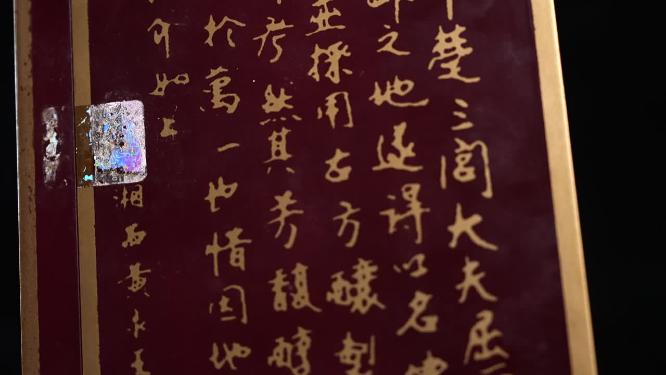 楚三闾大夫屈
之地遂得以名
並採用古方釀製
考然其芳馥醇
於萬一也惜因地
介如上
湘西黃永玉